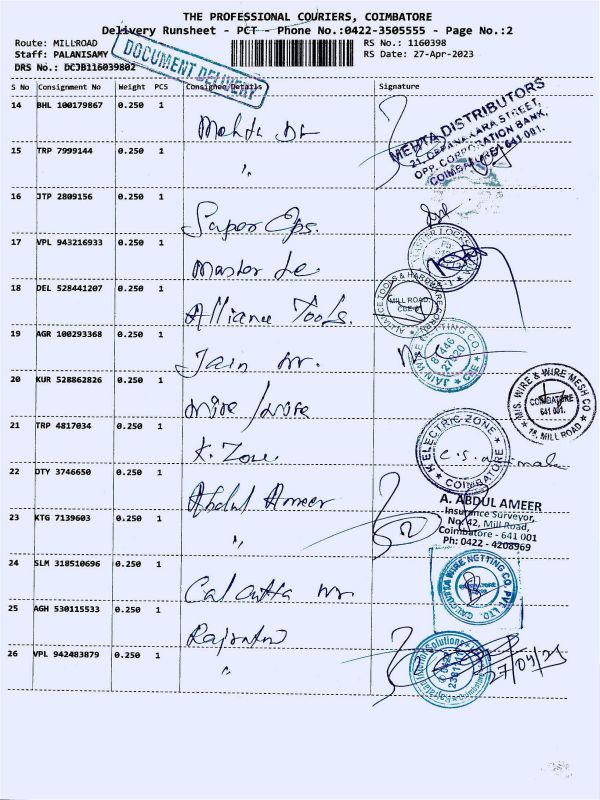 THE PROFESSIONAL COURIERS, COIMBATORE
Delivery Runsheet - PCT - Phone No.:0422-3505555 - Page No.:2
Route: MILLROAD
RS No.: 1160398
Staff: PALANISAMY
RS Date: 27-Apr-2023
DRS No.: DCJB116039802
DOCUMENT DELIVERY
S No Consignment No Weight PCS Consignee Details Signature
14 BHL 100179867 0.250 1
Mehta Dr
MEHTA DISTRIBUTORS
21, OPPANAKARA STREET,
OPP. CORPORATION BANK,
COIMBATORE - 641 001.
15 TRP 7999144 0.250 1
"
16 JTP 2809156 0.250 1
Super Eps.
17 VPL 943216933 0.250 1
Master Le
18 DEL 528441207 0.250 1
Alliance Tools.
ALLIANCE TOOLS & HARDWARE CORPN
MILL ROAD,
CBE-1
19 AGR 100293368 0.250 1
Jain Wr.
JAIN WIRE NETTING CO.
CBE
20 KUR 528862826 0.250 1
wire / wire
M/S. WIRE & WIRE MESH CO
COIMBATORE
641 001.
MILL ROAD
21 TRP 4817034 0.250 1
K. Zone
K ELECTRIC ZONE
COIMBATORE
22 DTY 3746650 0.250 1
Abdul Ameer
A. ABDUL AMEER
Insurance Surveyor,
No: 42, Mill Road,
Coimbatore - 641 001
Ph: 0422 - 4208969
23 KTG 7139603 0.250 1
"
24 SLM 318510696 0.250 1
Calcutta wr
CALCUTTA WIRE NETTING CO. PVT. LTD.
25 AGH 530115533 0.250 1
26 VPL 942483879 0.250 1
"
27/04/23